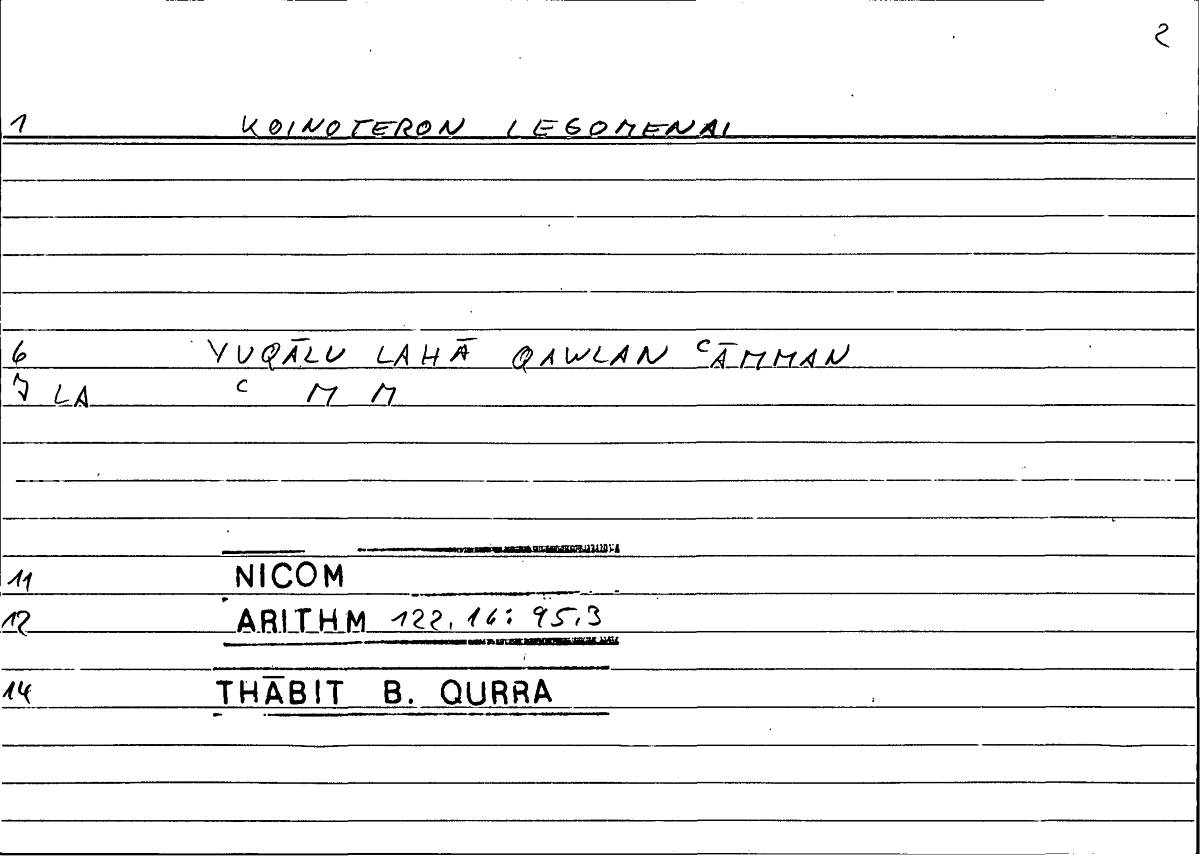 2
1 KOINOTERON LEGOMENAI
6 YUQĀLU LAHĀ QAWLAN ᶜĀMMAN
7 LA ᶜ M M
11 NICOM
12 ARITHM 122,16: 95,3
14 THĀBIT B. QURRA